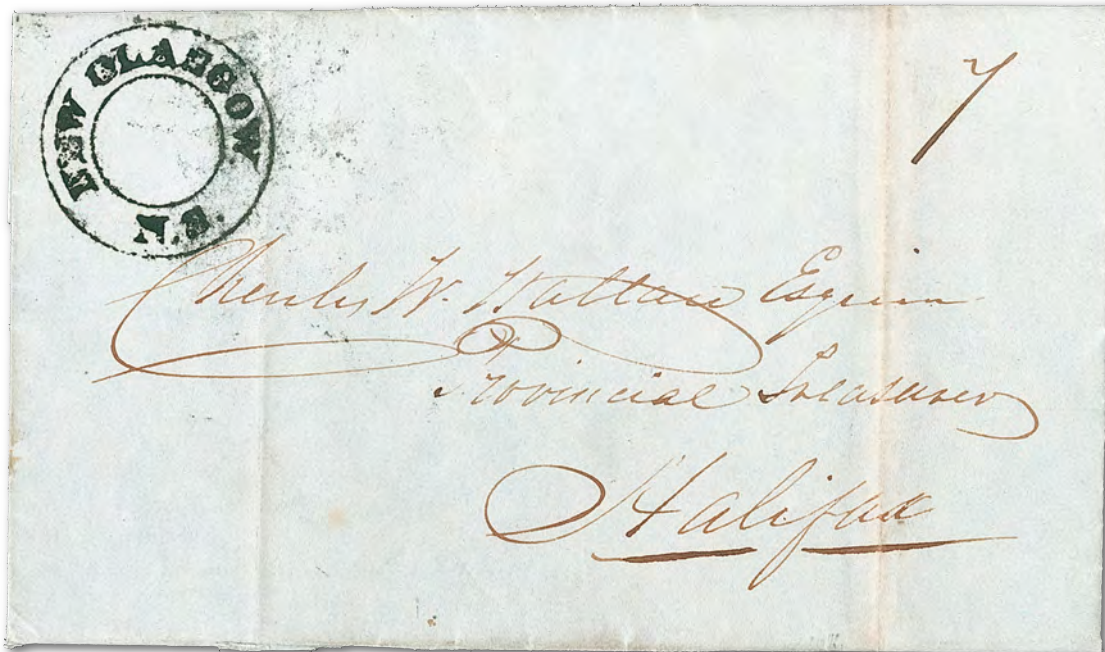 NEW GLASGOW
N.S.
7
Charles W. Wallace Esquire
Provincial Treasurer
Halifax